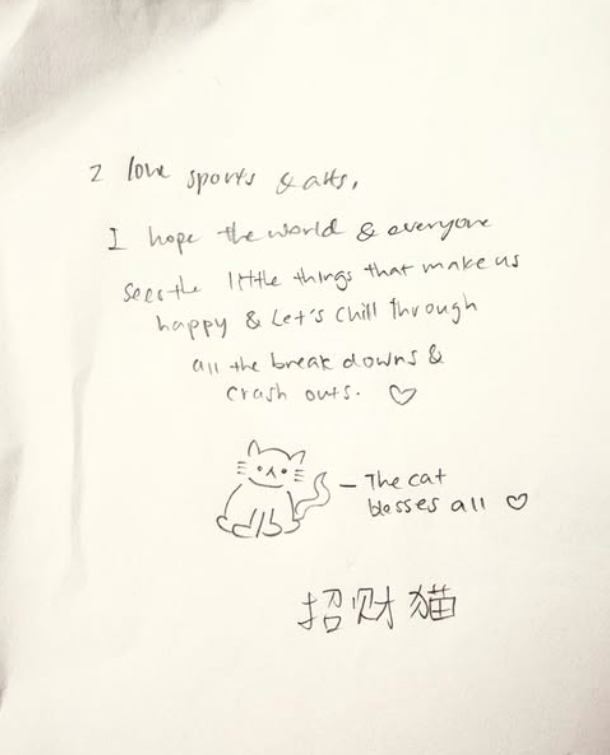 I love sports & arts,
I hope the world & everyone
sees the little things that make us
happy & Let's chill through
all the break downs &
crash outs. ♡
— The cat
blesses all ♡
招财猫